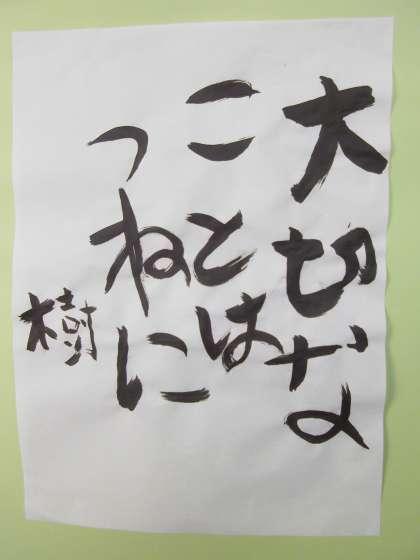 大切な
ことは
つねに
樹